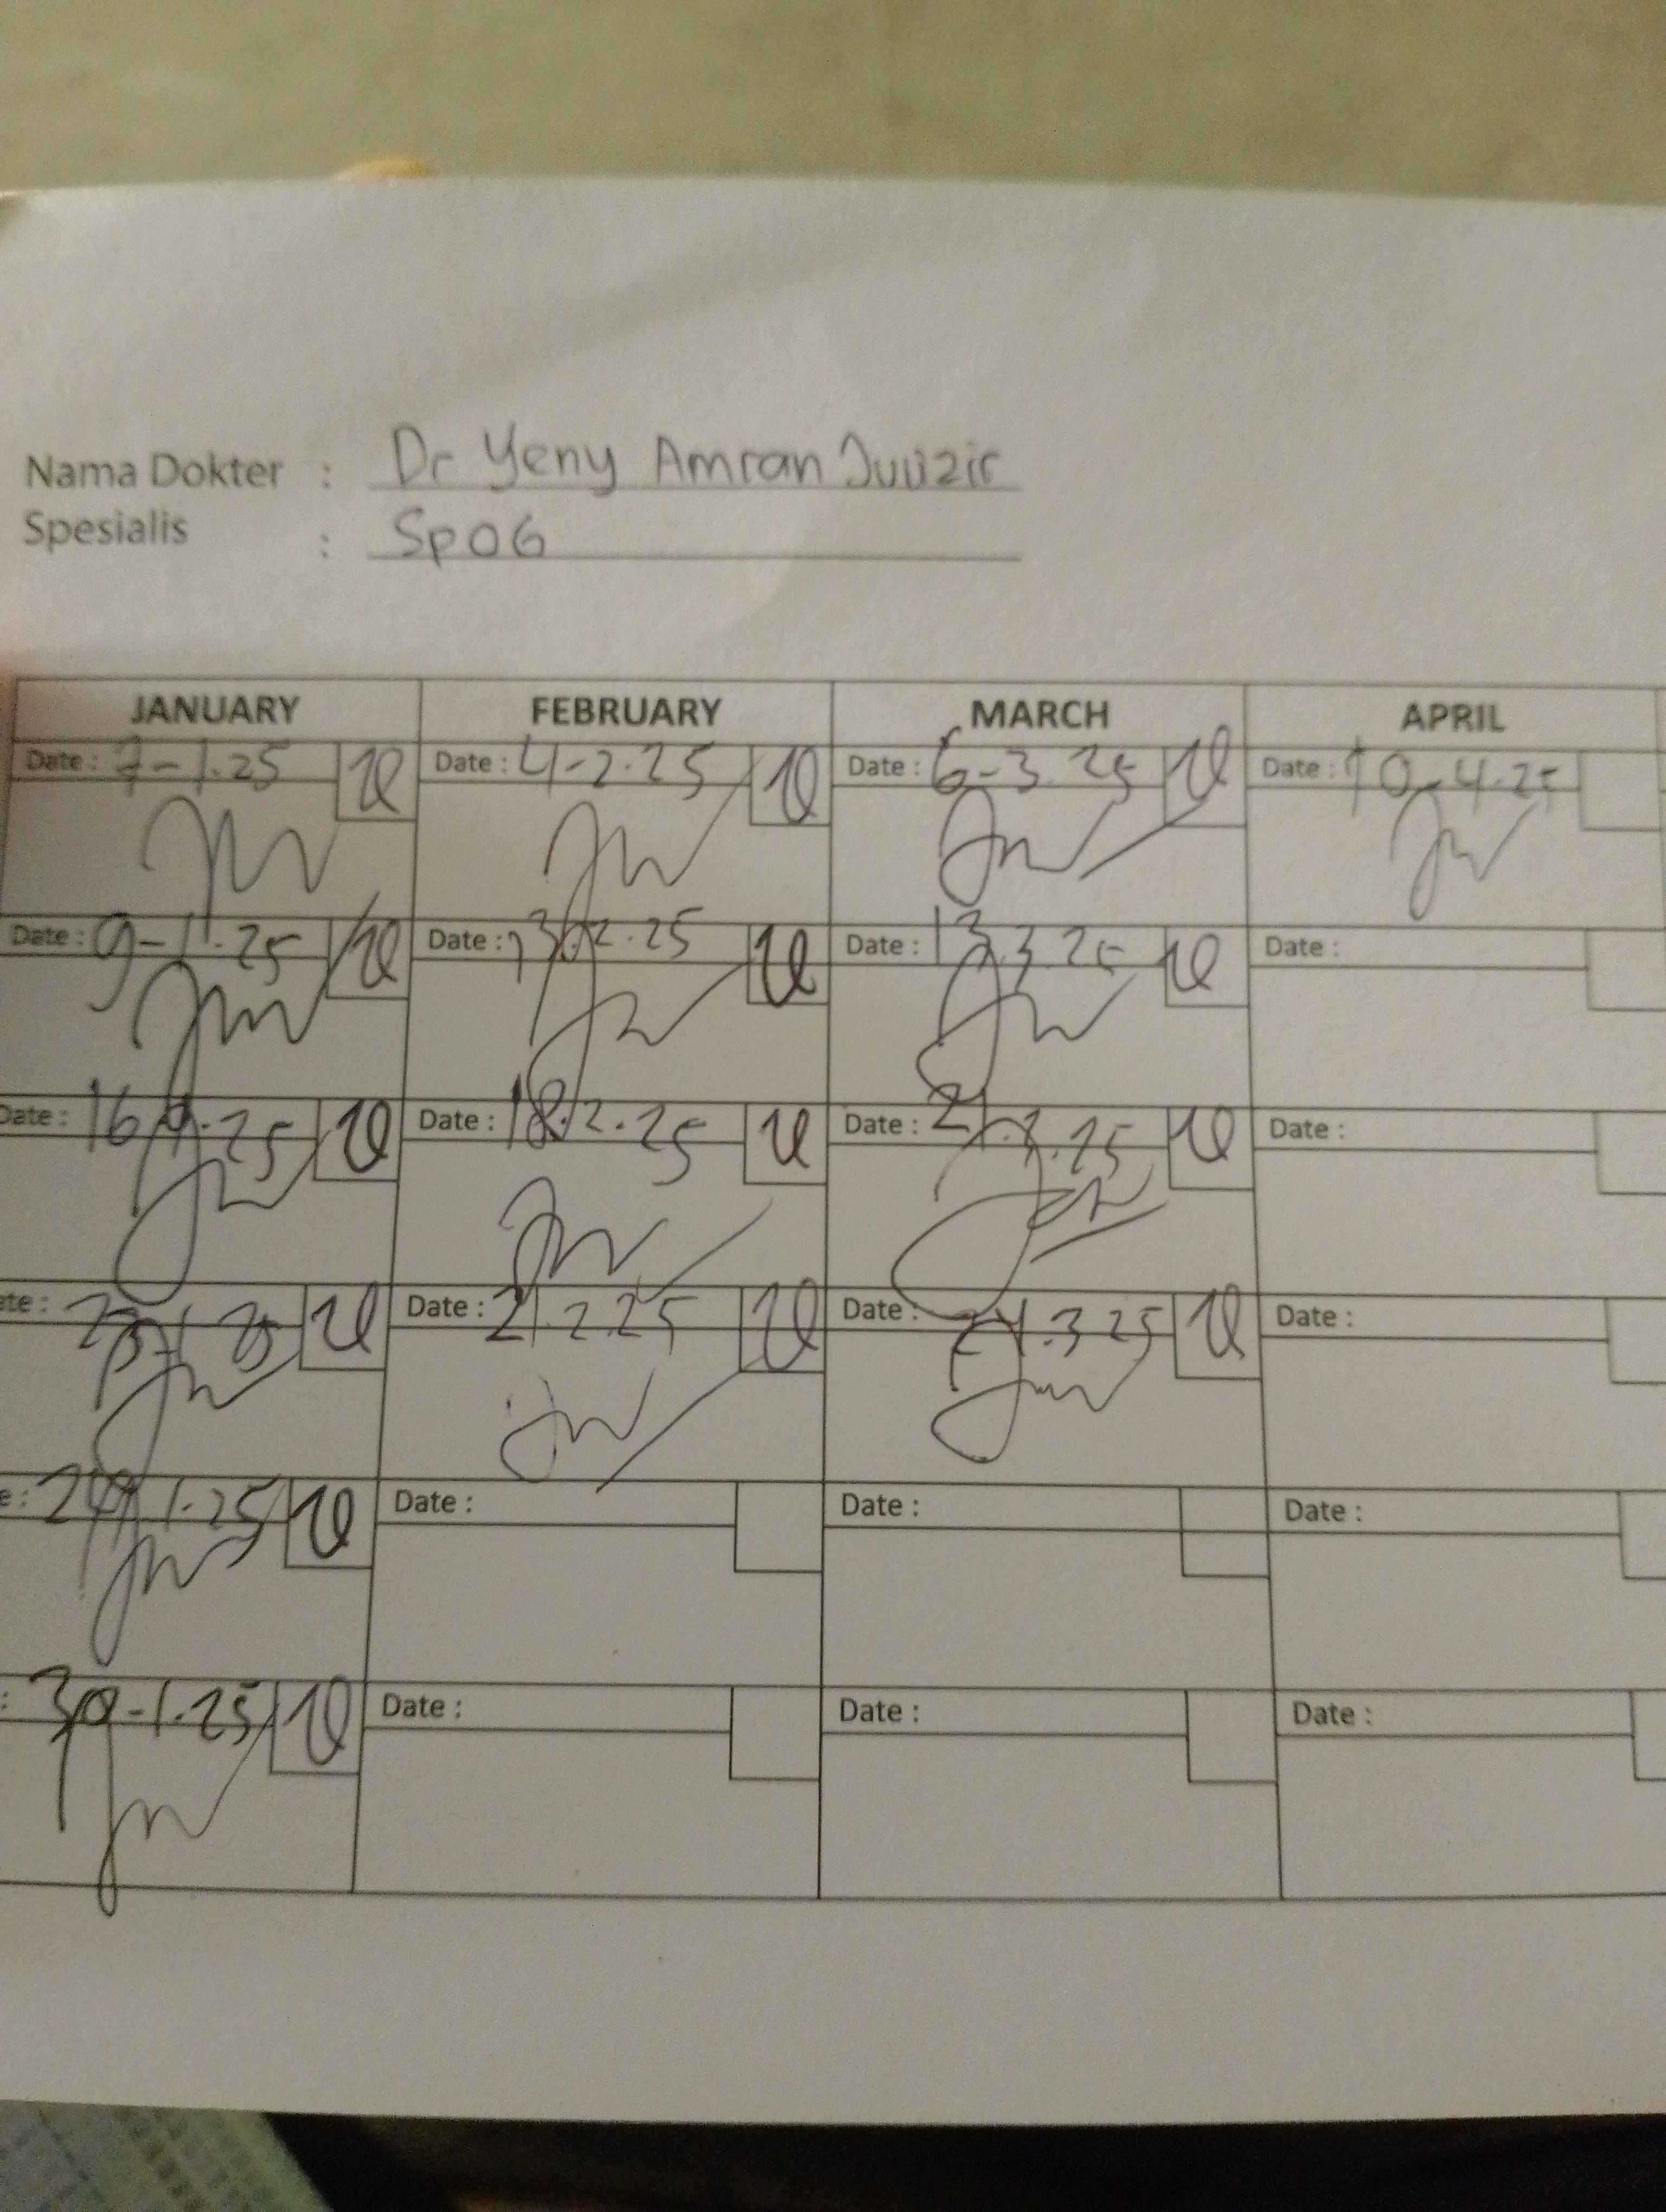 Nama Dokter : Dr Yeny Amran
Spesialis : SpOG
JANUARY FEBRUARY MARCH APRIL
Date : 7-1.25 Date : 4-2.25 Date : 6-3.25 Date : 10-4.25
Date : 9-1.25 Date : 13.2.25 Date : 13.3.25 Date :
Date : 16.1.25 Date : 18.2.25 Date : 21.3.25 Date :
ate : Date : 21.2.25 Date : 24.3.25 Date :
e : 1.25 Date : Date : Date :
: 30-1.25 Date : Date : Date :